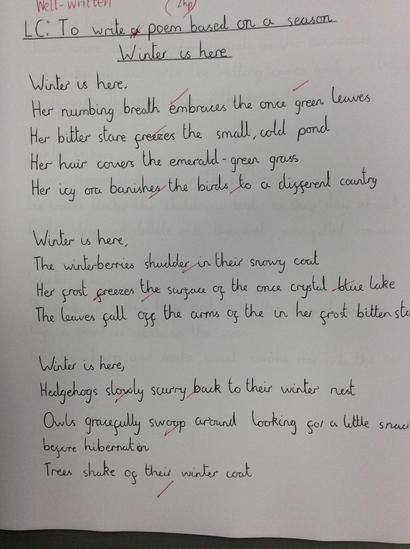 Well-written (2hp)
LC: To write a poem based on a season
Winter is here
Winter is here,
Her numbing breath embraces the once green leaves
Her bitter stare freezes the small, cold pond
Her hair covers the emerald-green grass
Her icy ora banishes the birds to a different country
Winter is here,
The winterberries shudder in their snowy coat
Her frost freezes the surface of the once crystal blue lake
The leaves fall off the arms of the in her frost bitten
Winter is here,
Hedgehogs slowly scurry back to their winter nest
Owls gracefully swoop around looking for a little
before hibernation
Trees shake of their winter coat